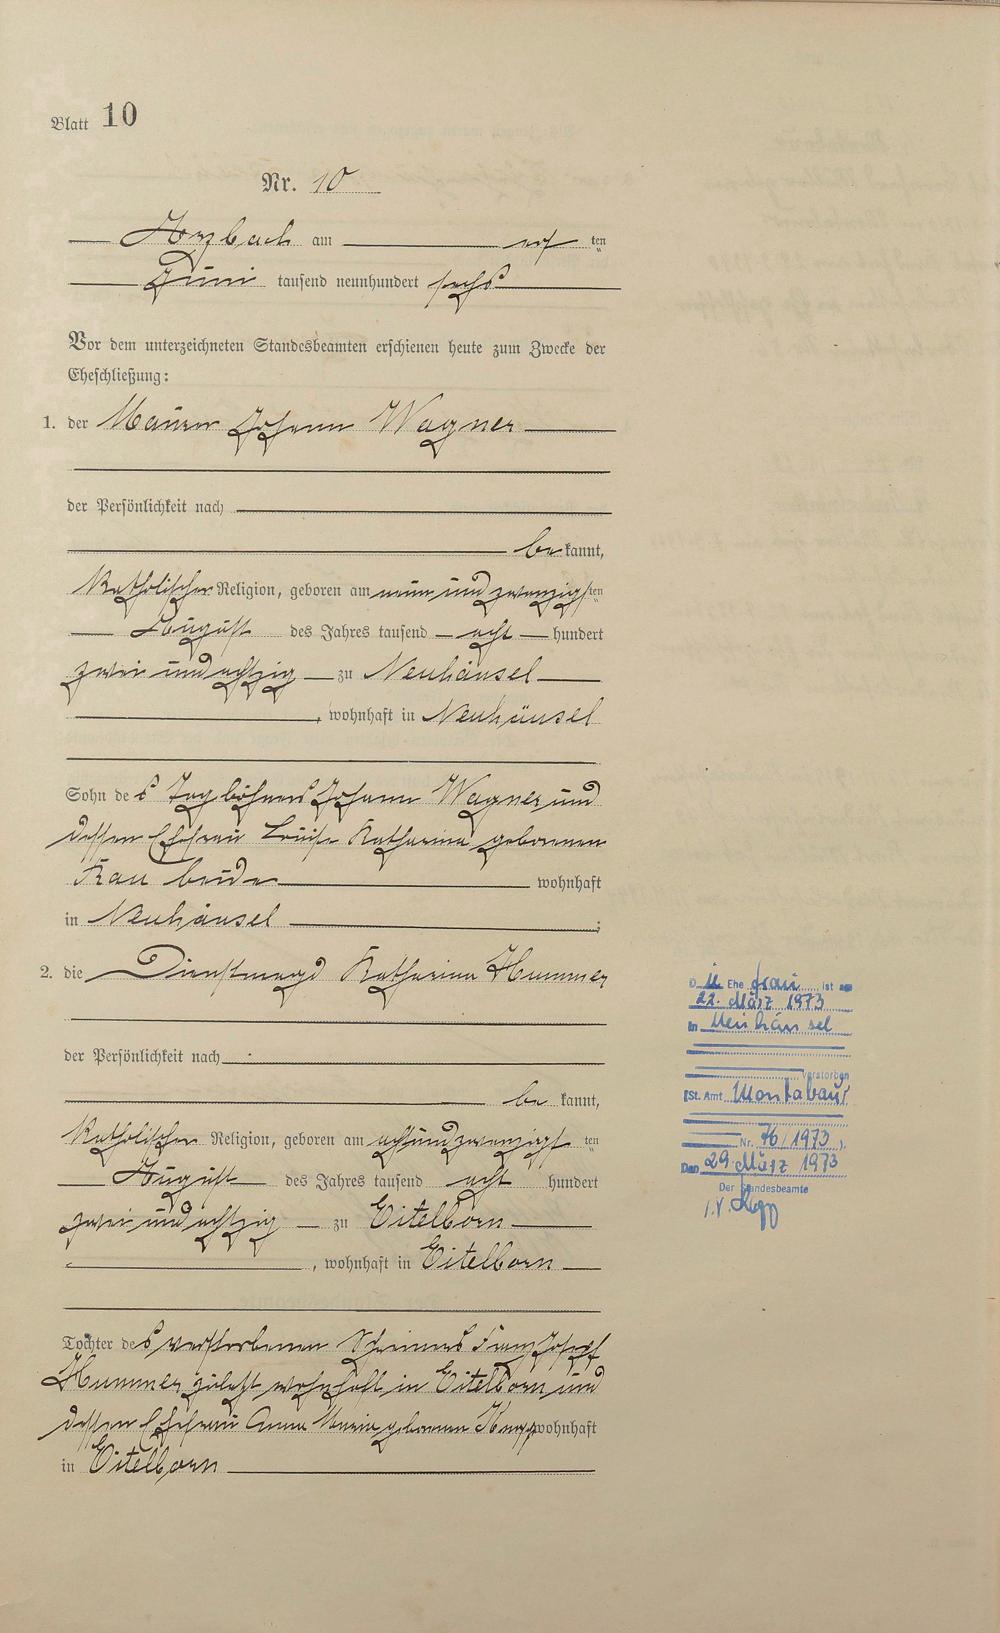 Blatt 10
Nr. 10
Arzbach am ten
Juni tausend neunhundert sechs
Vor dem unterzeichneten Standesbeamten erschienen heute zum Zwecke der
Eheschließung:
1. der Maurer Johann Wagner
der Persönlichkeit nach
be kannt,
katholischer Religion, geboren am neun und zwanzigsten
August des Jahres tausend acht hundert
zwei und achtzig zu Neuhäusel
, wohnhaft in Neuhäusel
Sohn des Taglöhners Johann Wagner und
dessen Ehefrau Luise Katharina geborenen
beide wohnhaft
in Neuhäusel ;
2. die Dienstmagd Katharina Hummer
der Persönlichkeit nach
be kannt,
katholischer Religion, geboren am achtundzwanzigst ten
August des Jahres tausend acht hundert
zwei und achtzig zu Eitelborn
, wohnhaft in Eitelborn
Tochter des verstorbenen Schreiners Franz Josef
Hummer zuletzt wohnhaft in Eitelborn und
dessen Ehefrau Anna Maria geborenen wohnhaft
in Eitelborn
Die Ehefrau ist am
22. März 1973
in Neuhäusel
verstorben
(St. Amt Montabaur
Nr. 76/1973 ).
Den 29. März 1973
Der Standesbeamte
I.V.